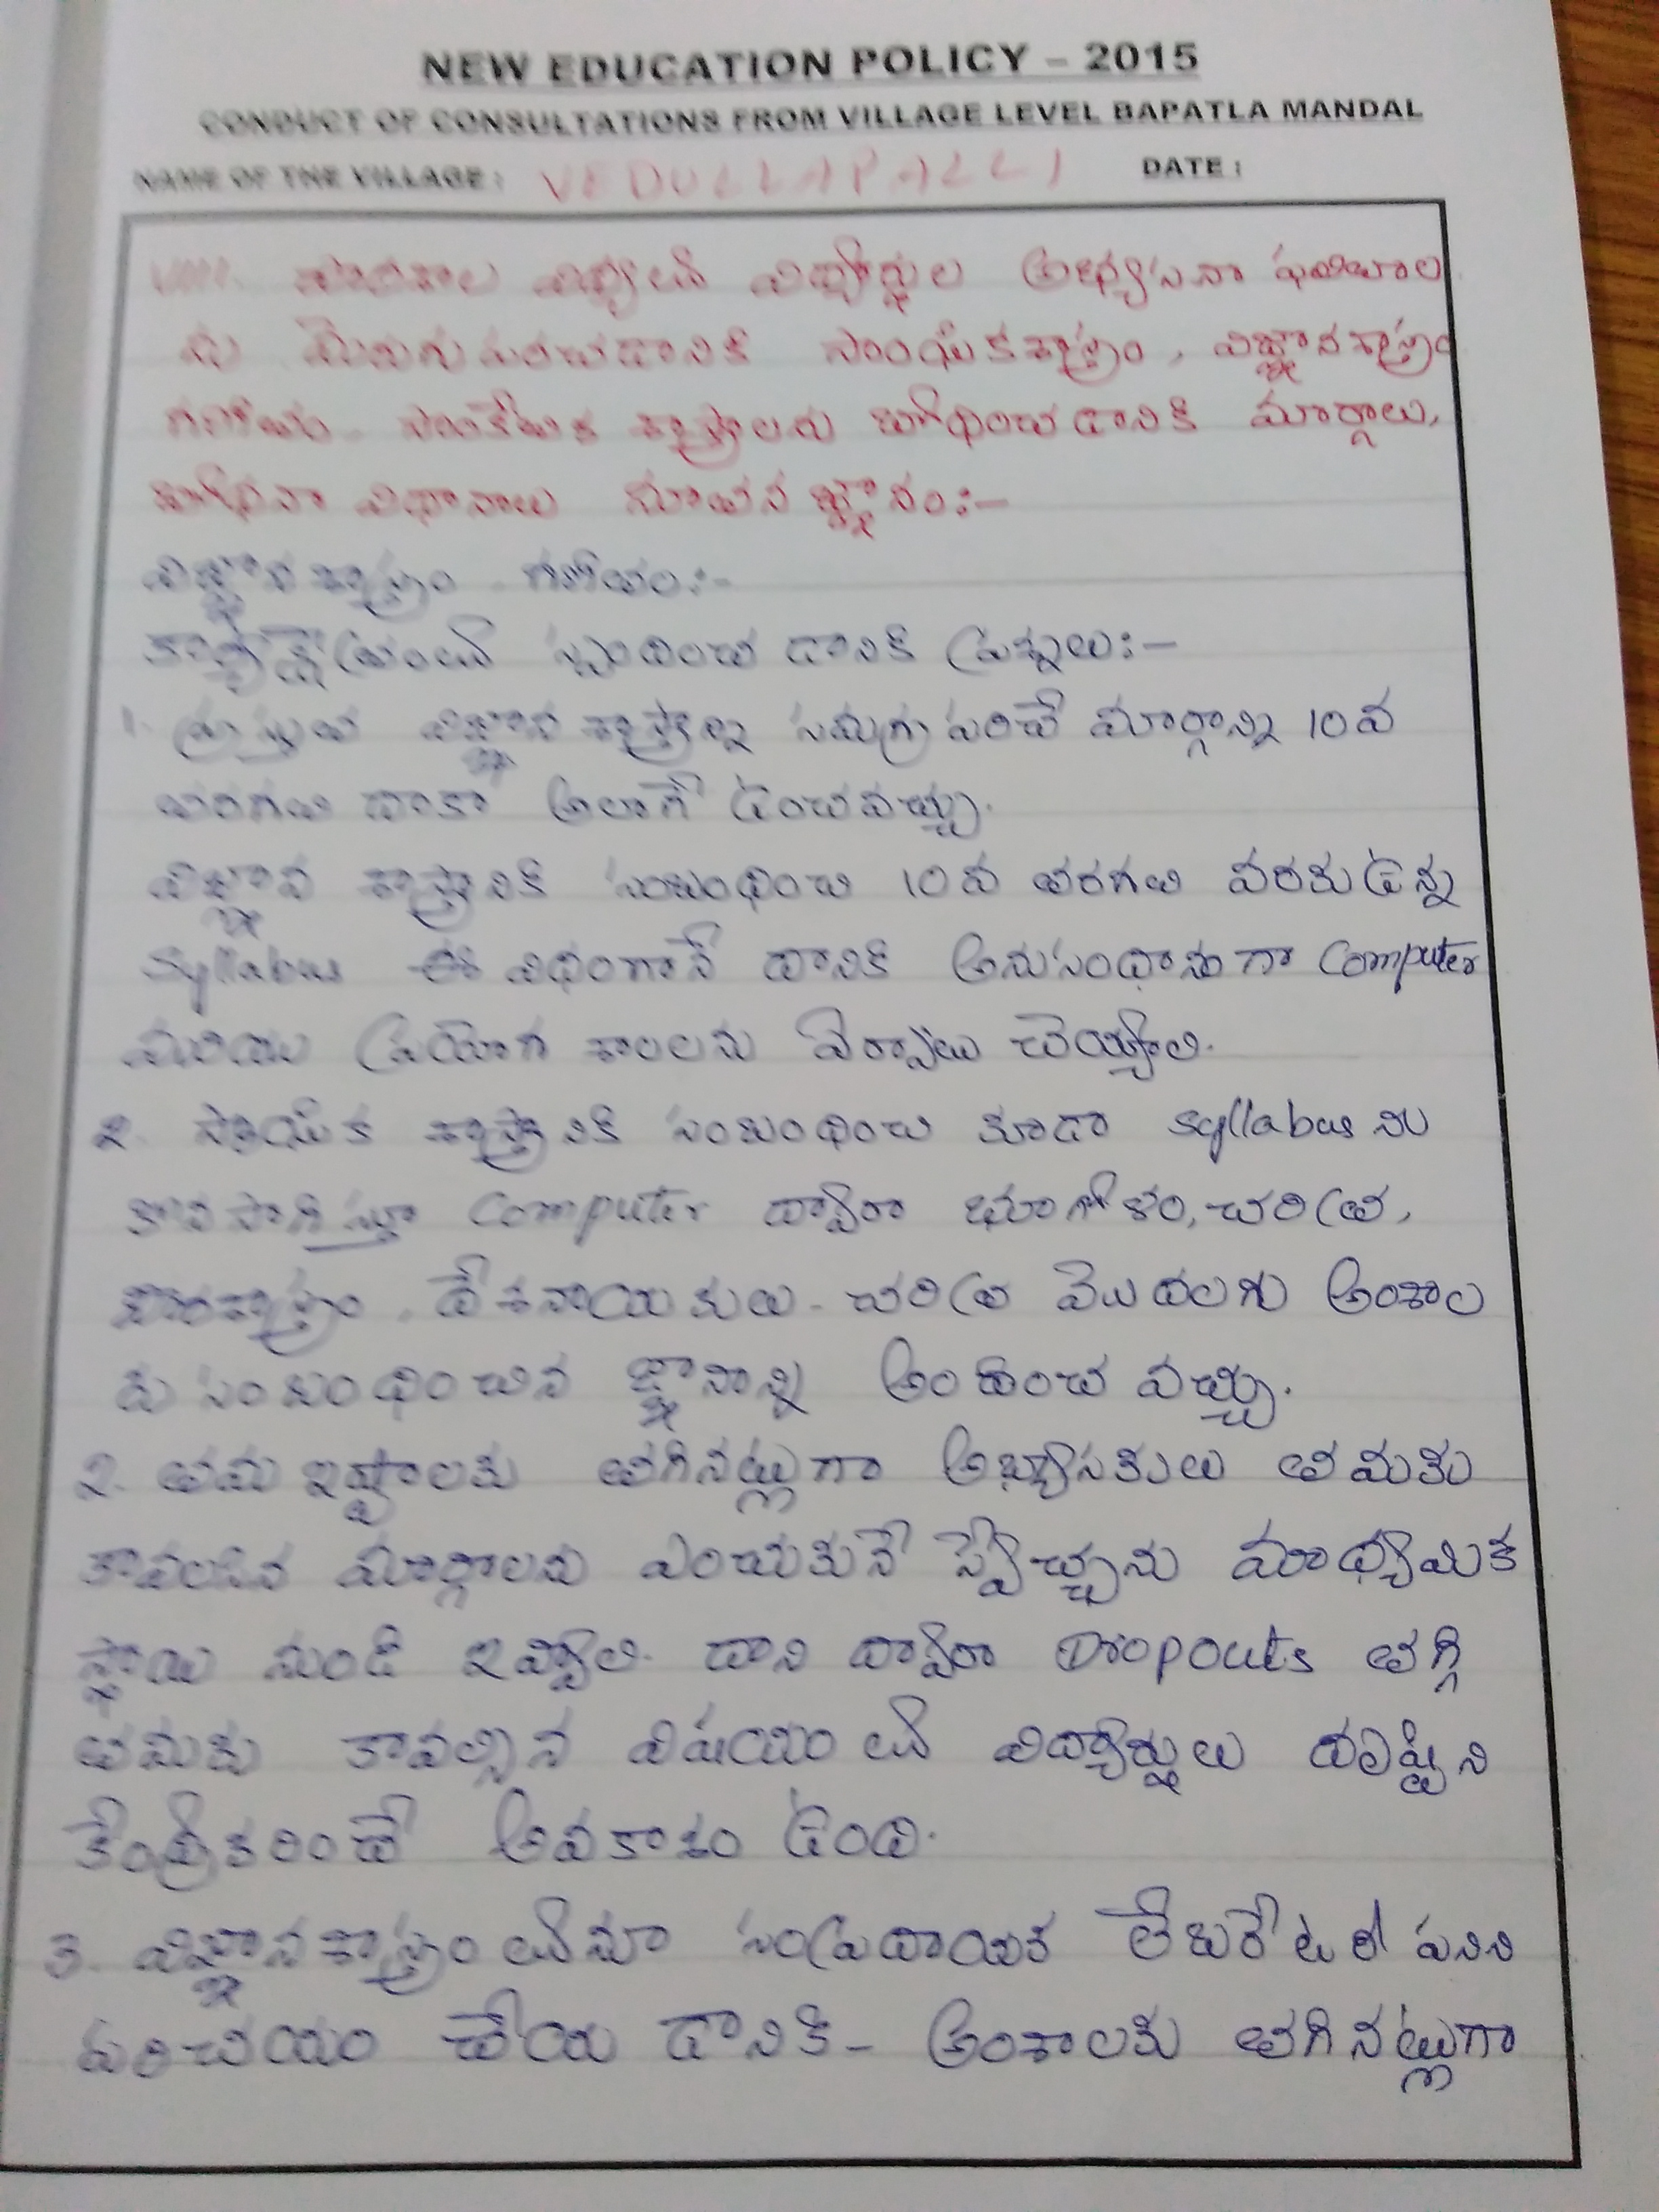 NEW EDUCATION POLICY – 2015
CONDUCT OF CONSULTATIONS FROM VILLAGE LEVEL BAPATLA MANDAL
NAME OF THE VILLAGE : VEDULLAPALLI DATE :
VIII. పాఠశాల విద్యలో విద్యార్థుల అభ్యసనా ఫలితాల
ను మెరుగుపరచడానికి సాంఘికశాస్త్రం, విజ్ఞానశాస్త్రం
గణితం, సాంకేతిక శాస్త్రాలను బోధించడానికి మార్గాలు,
బోధనా విధానాలు నూతన జ్ఞానం:-
విజ్ఞాన శాస్త్రం - గణితం:-
స్పందించ డానికి ప్రశ్నలు:-
1. ప్రస్తుత విజ్ఞాన శాస్త్రాన్ని సమగ్ర పరిచే మార్గాన్ని 10వ
తరగతి దాకా అలాగే ఉంచవచ్చు.
విజ్ఞాన శాస్త్రానికి సంబంధించి 10వ తరగతి వరకు ఉన్న
syllabus ఈ విధంగానే దానికి అనుసంధానంగా Computer
మరియు ప్రయోగ శాలలను ఏర్పాటు చెయ్యాలి.
2. సాంఘిక శాస్త్రానికి సంబంధించి కూడా syllabus ను
కొనసాగిస్తూ Computer ద్వారా భూగోళం, చరిత్ర,
పౌరశాస్త్రం, దేశనాయకులు - చరిత్ర మొదలగు అంశాల
కు సంబంధించిన జ్ఞానాన్ని అందించ వచ్చు.
2. తమ ఇష్టాలకు తగినట్లుగా అభ్యాసకులు తమకు
కావలసిన మార్గాలను ఎంచుకునే స్వేచ్ఛను మాధ్యమిక
స్థాయి నుండి ఇవ్వాలి. దాని ద్వారా Dropouts తగ్గి
తమకు కావల్సిన విషయం లో విద్యార్థులు దృష్టిని
కేంద్రీకరించే అవకాశం ఉంది.
3. విజ్ఞానశాస్త్రంలోనూ సంప్రదాయిక లేబరేటరీ పనిని
పరిచయం చేయ డానికి - అంశాలకు తగినట్లుగా